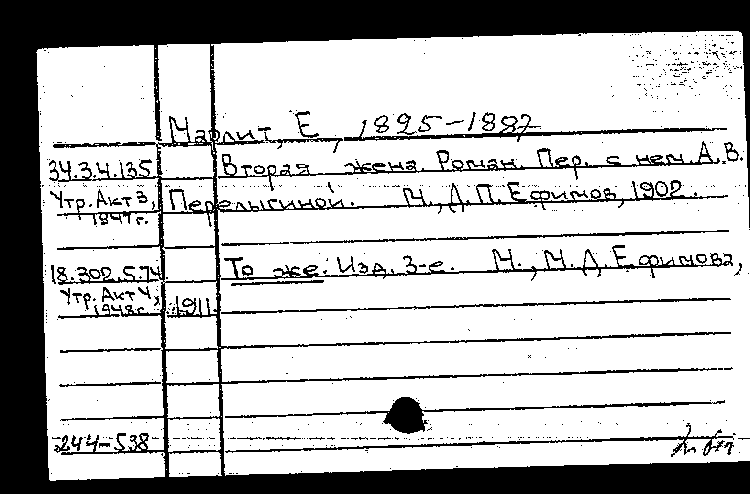 Марлит, Е., 1825-1887
34.34.135 Вторая жена. Роман. Пер. с нем. А. В.
Утр. Акт 3, Перелыгиной. М., Д. П. Ефимов, 1902.
1947 г.
18.302.5.74 То же. Изд. 3-е. М., М. Д. Ефимова,
Утр. Акт 4, 1911.
1948 г.
244-538